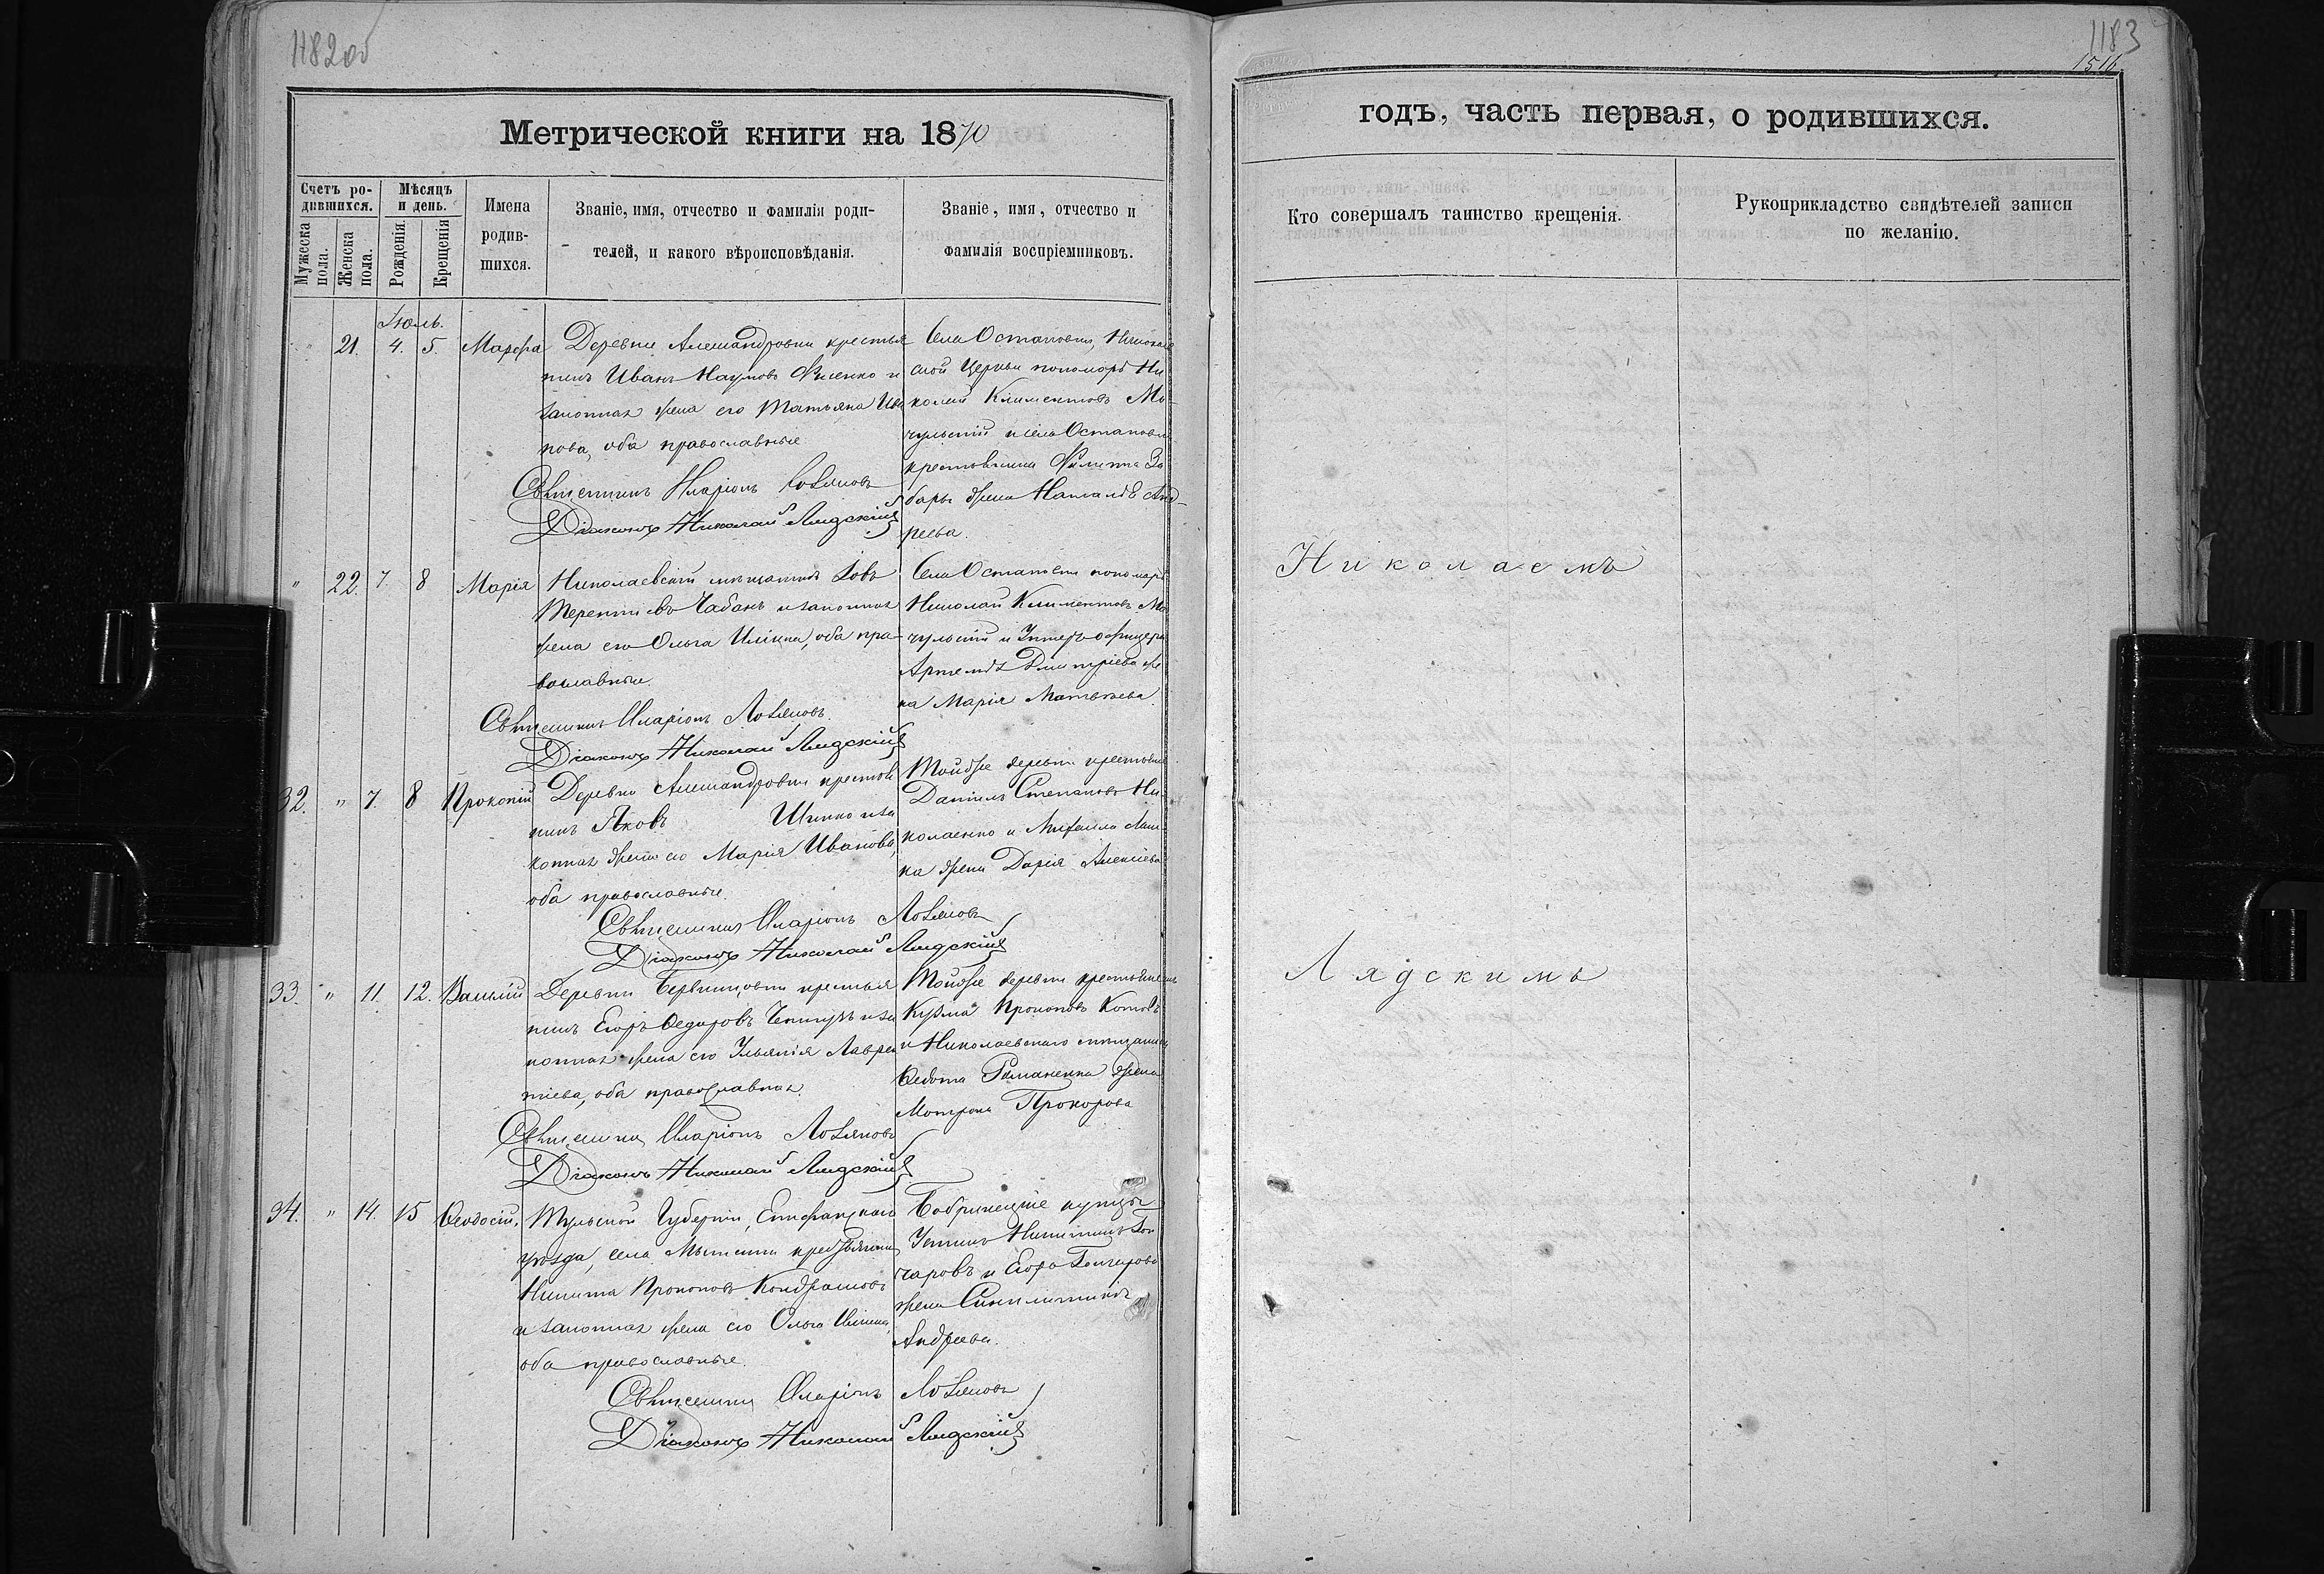 1182об
1183
1516
Метрической книги на 1870
годъ, часть первая, о родившихся.
Счетъ ро-
дившихся.
Мужеска
пола.
Женска
пола.
Мѣсяцъ
и день.
Рожденія.
Крещенія
Имена
родив-
шихся.
Званіе, имя, отчество и фамилія роди-
телей, и какого вѣроисповѣданія.
Званіе, имя, отчество и
фамилія воспріемниковъ.
Кто совершалъ таинство крещенія.
Рукоприкладство свидѣтелей записи
по желанію.
Іюль.
" 21. 4. 5. Марфа
Деревни Александровки крестья
нинъ Иванъ Наумовъ и
законная жена его Татьяна Ива
нова, оба православные
Священникъ Иларіонъ
Діаконъ Николай Лядскій
Села Остаповки, Николаев
ской Церкви пономарь Ни
колай Климентовъ Мо-
чульскій и села Остаповки
крестьянина Филиппа За
бары жена Наталія Анд-
реева.
" 22. 7. 8 Марія
Николаевскій мѣщанинъ Іовъ
Терентіевъ Чабанъ и законная
жена его Ольга Ильина, оба пра-
вославные.
Священникъ Иларіонъ
Діаконъ Николай Лядскій
Села Остаповки пономарь
Николай Климентовъ Мо
чульскій и Унтеръ-офицера
Димитріева же
на Марія Матвѣева.
32. " 7. 8 Прокопій
Деревни Александровки крестья
нинъ Яковъ Шинко и за
конная жена его Марія Иванова,
оба православные.
Священникъ Иларіонъ
Діаконъ Николай Лядскій
Тойже деревни крестьяне
Даніилъ Степановъ Ни-
колаенко и Михаила
ка жена Дарія Алексіева
33. " 11. 12. Василій
Деревни крестья
нинъ Егоръ Федоровъ и за
конная жена его Ульянія Лаврен
тіева, оба православная.
Священникъ Иларіонъ
Діаконъ Николай Лядскій
Тойже деревни крестьянинъ
Кузма Прокоповъ Котовъ
и Николаевскаго мѣщанина
Ѳедота Романенка жена
Мотрона Прохорова
34. " 14. 15 Ѳеодосій.
Тульской Губерніи, Епифанскаго
уѣзда, села крестьянинъ
Никита Прокоповъ Кондрашовъ
и законная жена его Ольга
оба православные.
Священникъ Иларіонъ
Діаконъ Николай Лядскій
Бобринецкіе купцы
Устинъ Никитинъ Гон
чаровъ и Егора Гончарова
жена
Андреева.
Николаемъ
Лядскимъ